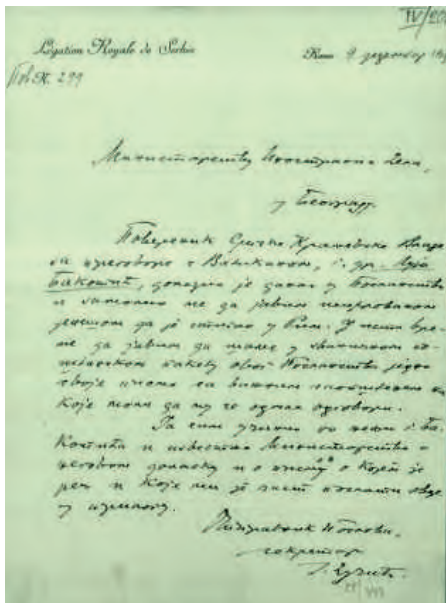 IV/20
Légation Royale de Serbie
Rome 9 децембар
Пов № 299
Министарству Иностраних Дела,
у Београд.
Повереник Српске Краљевске Владе
за преговоре с Ватиканом, г. др. Лујо
Бакотић, долазио је данас у Посланство
и замолио ме да јавим шифрованом
депешом да је стигао у Рим.
да јавим да шаље у званичном
пакету овог Посланства једно
своје писмо са важним саопштењем на
које моли да му се одмах одговори.
Ја сам учинио по жељи г. Ба-
котића и известио Министарство о
његовом доласку и о писму о коме је
реч и које ми је част послати овде
у прилогу.
Отправник Послова,
секретар